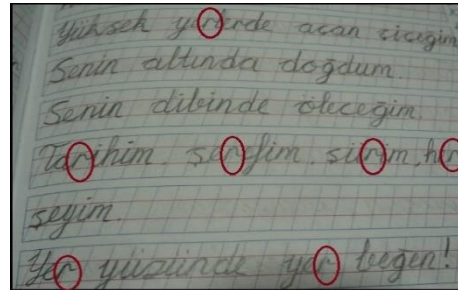 Yüksek yerlerde açan çiçeğim
Senin altında doğdum.
Senin dibinde öleceğim.
Tarihim, şerefim, şiirim, her
şeyim.
Yer yüzünde yer beğen!